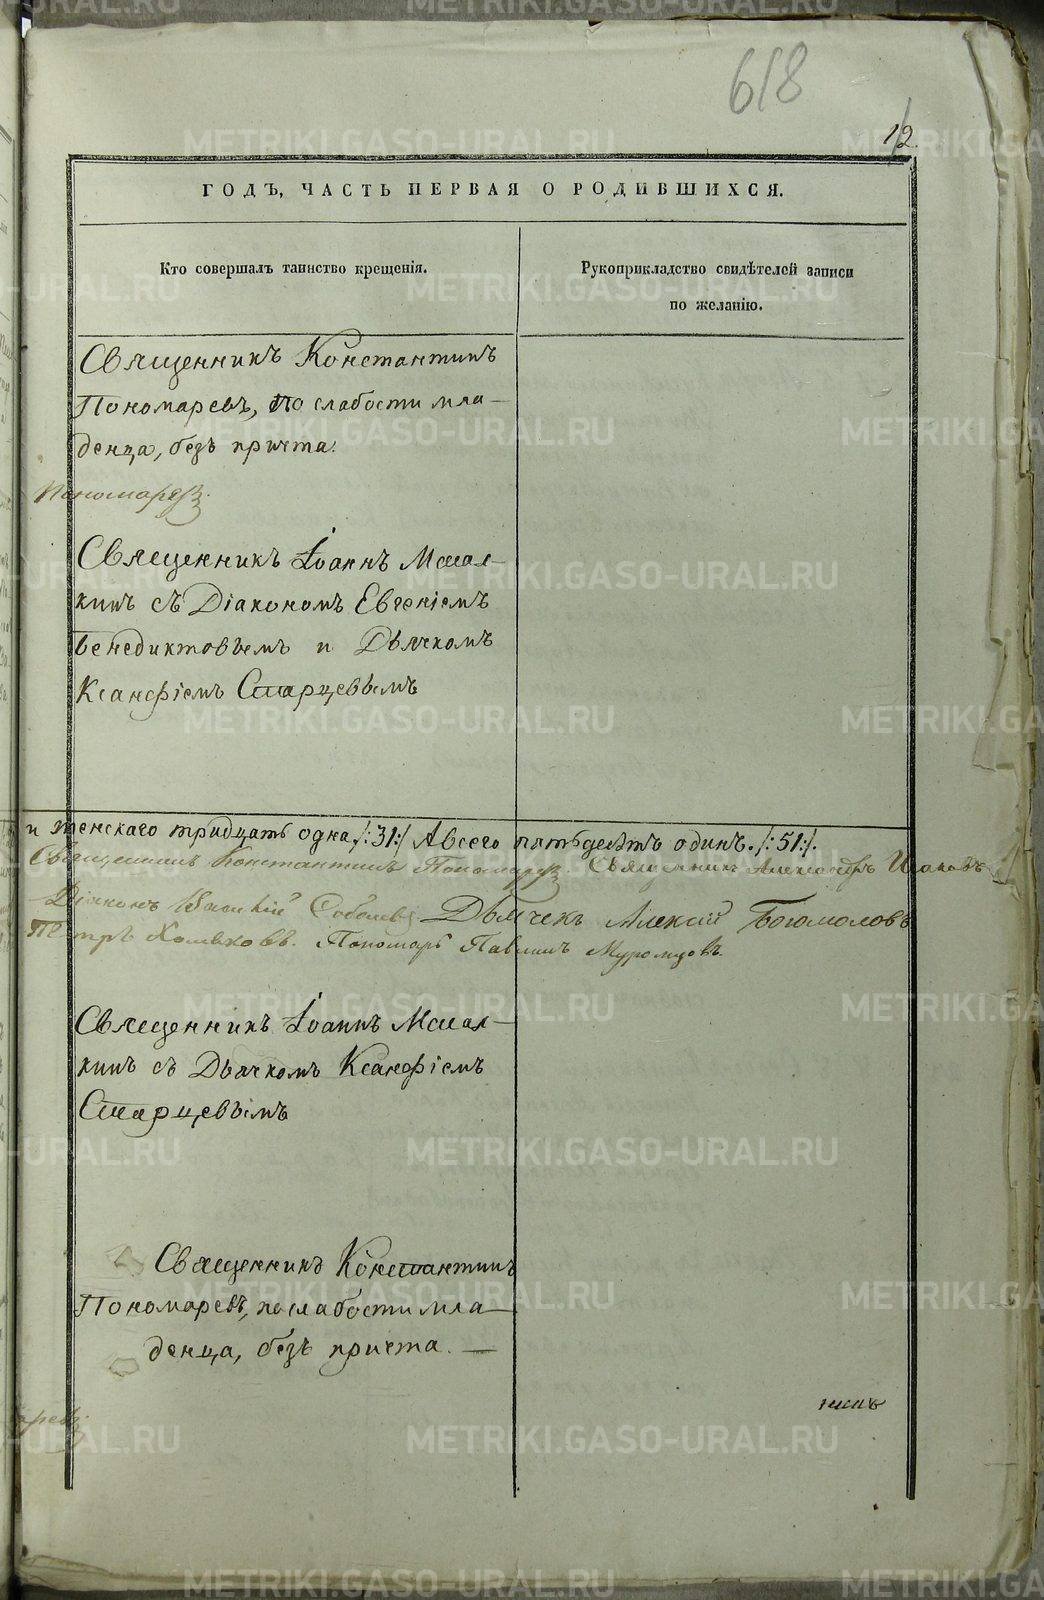 618
12
ГОДЪ, ЧАСТЬ ПЕРВАЯ О РОДИВШИХСЯ.
Кто совершалъ таинство крещенія.
Рукоприкладство свидѣтелей записи
по желанію.
Священникъ Константинъ
Пономаревъ, по слабости мла-
денца, безъ причта.
Пономаревъ.
Священникъ Іоаннъ Масал-
кинъ съ Діакономъ Евгеніемъ
Бенедиктовымъ и Дьячкомъ
Ксанфіемъ Старцевымъ
и женскаго тридцать одна /:31:/ А всего пятьдесятъ одинъ. /:51:/.
Священникъ Константинъ Пономаревъ. Священникъ Александръ
Діаконъ Василій Соболевъ Дьячекъ Алексій Богомоловъ
Петръ Хомяковъ. Пономарь Павлинъ Муромцовъ.
Священникъ Іоаннъ Масал-
кинъ съ Дьячкомъ Ксанфіемъ
Старцевымъ
Священникъ Константинъ
Пономаревъ, по слабости мла-
денца, безъ причта. —
аревъ.
METRIKI.GASO-URAL.RU